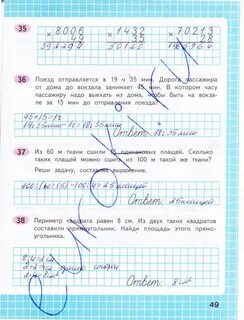 35
× 8006 × 1432 × 70213
49 35 28
392294 50120 1965964
36
Поезд отправляется в 19 ч 35 мин. Дорога пассажира
от дома до вокзала занимает 45 мин. В котором часу
пассажиру надо выехать из дома, чтобы быть на вокзале
за 15 мин до отправления поезда?
45+15=
Ответ: 18ч35мин
37
Из 60 м ткани сшили 15 одинаковых плащей. Сколько
таких плащей можно сшить из 100 м такой же ткани?
Реши задачу, составив выражение.
100:(60:15)=100:4=25плащей
Ответ: 25плащей
38
Периметр квадрата равен 8 см. Из двух таких квадратов
составили прямоугольник. Найди площадь этого прямоугольника.
8:4=2см
Ответ: 8см²
49